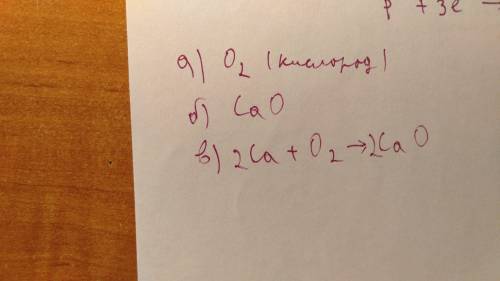 p + 3e →
а) O₂ (кислород)
б) CaO
в) 2Ca + O₂ → 2CaO